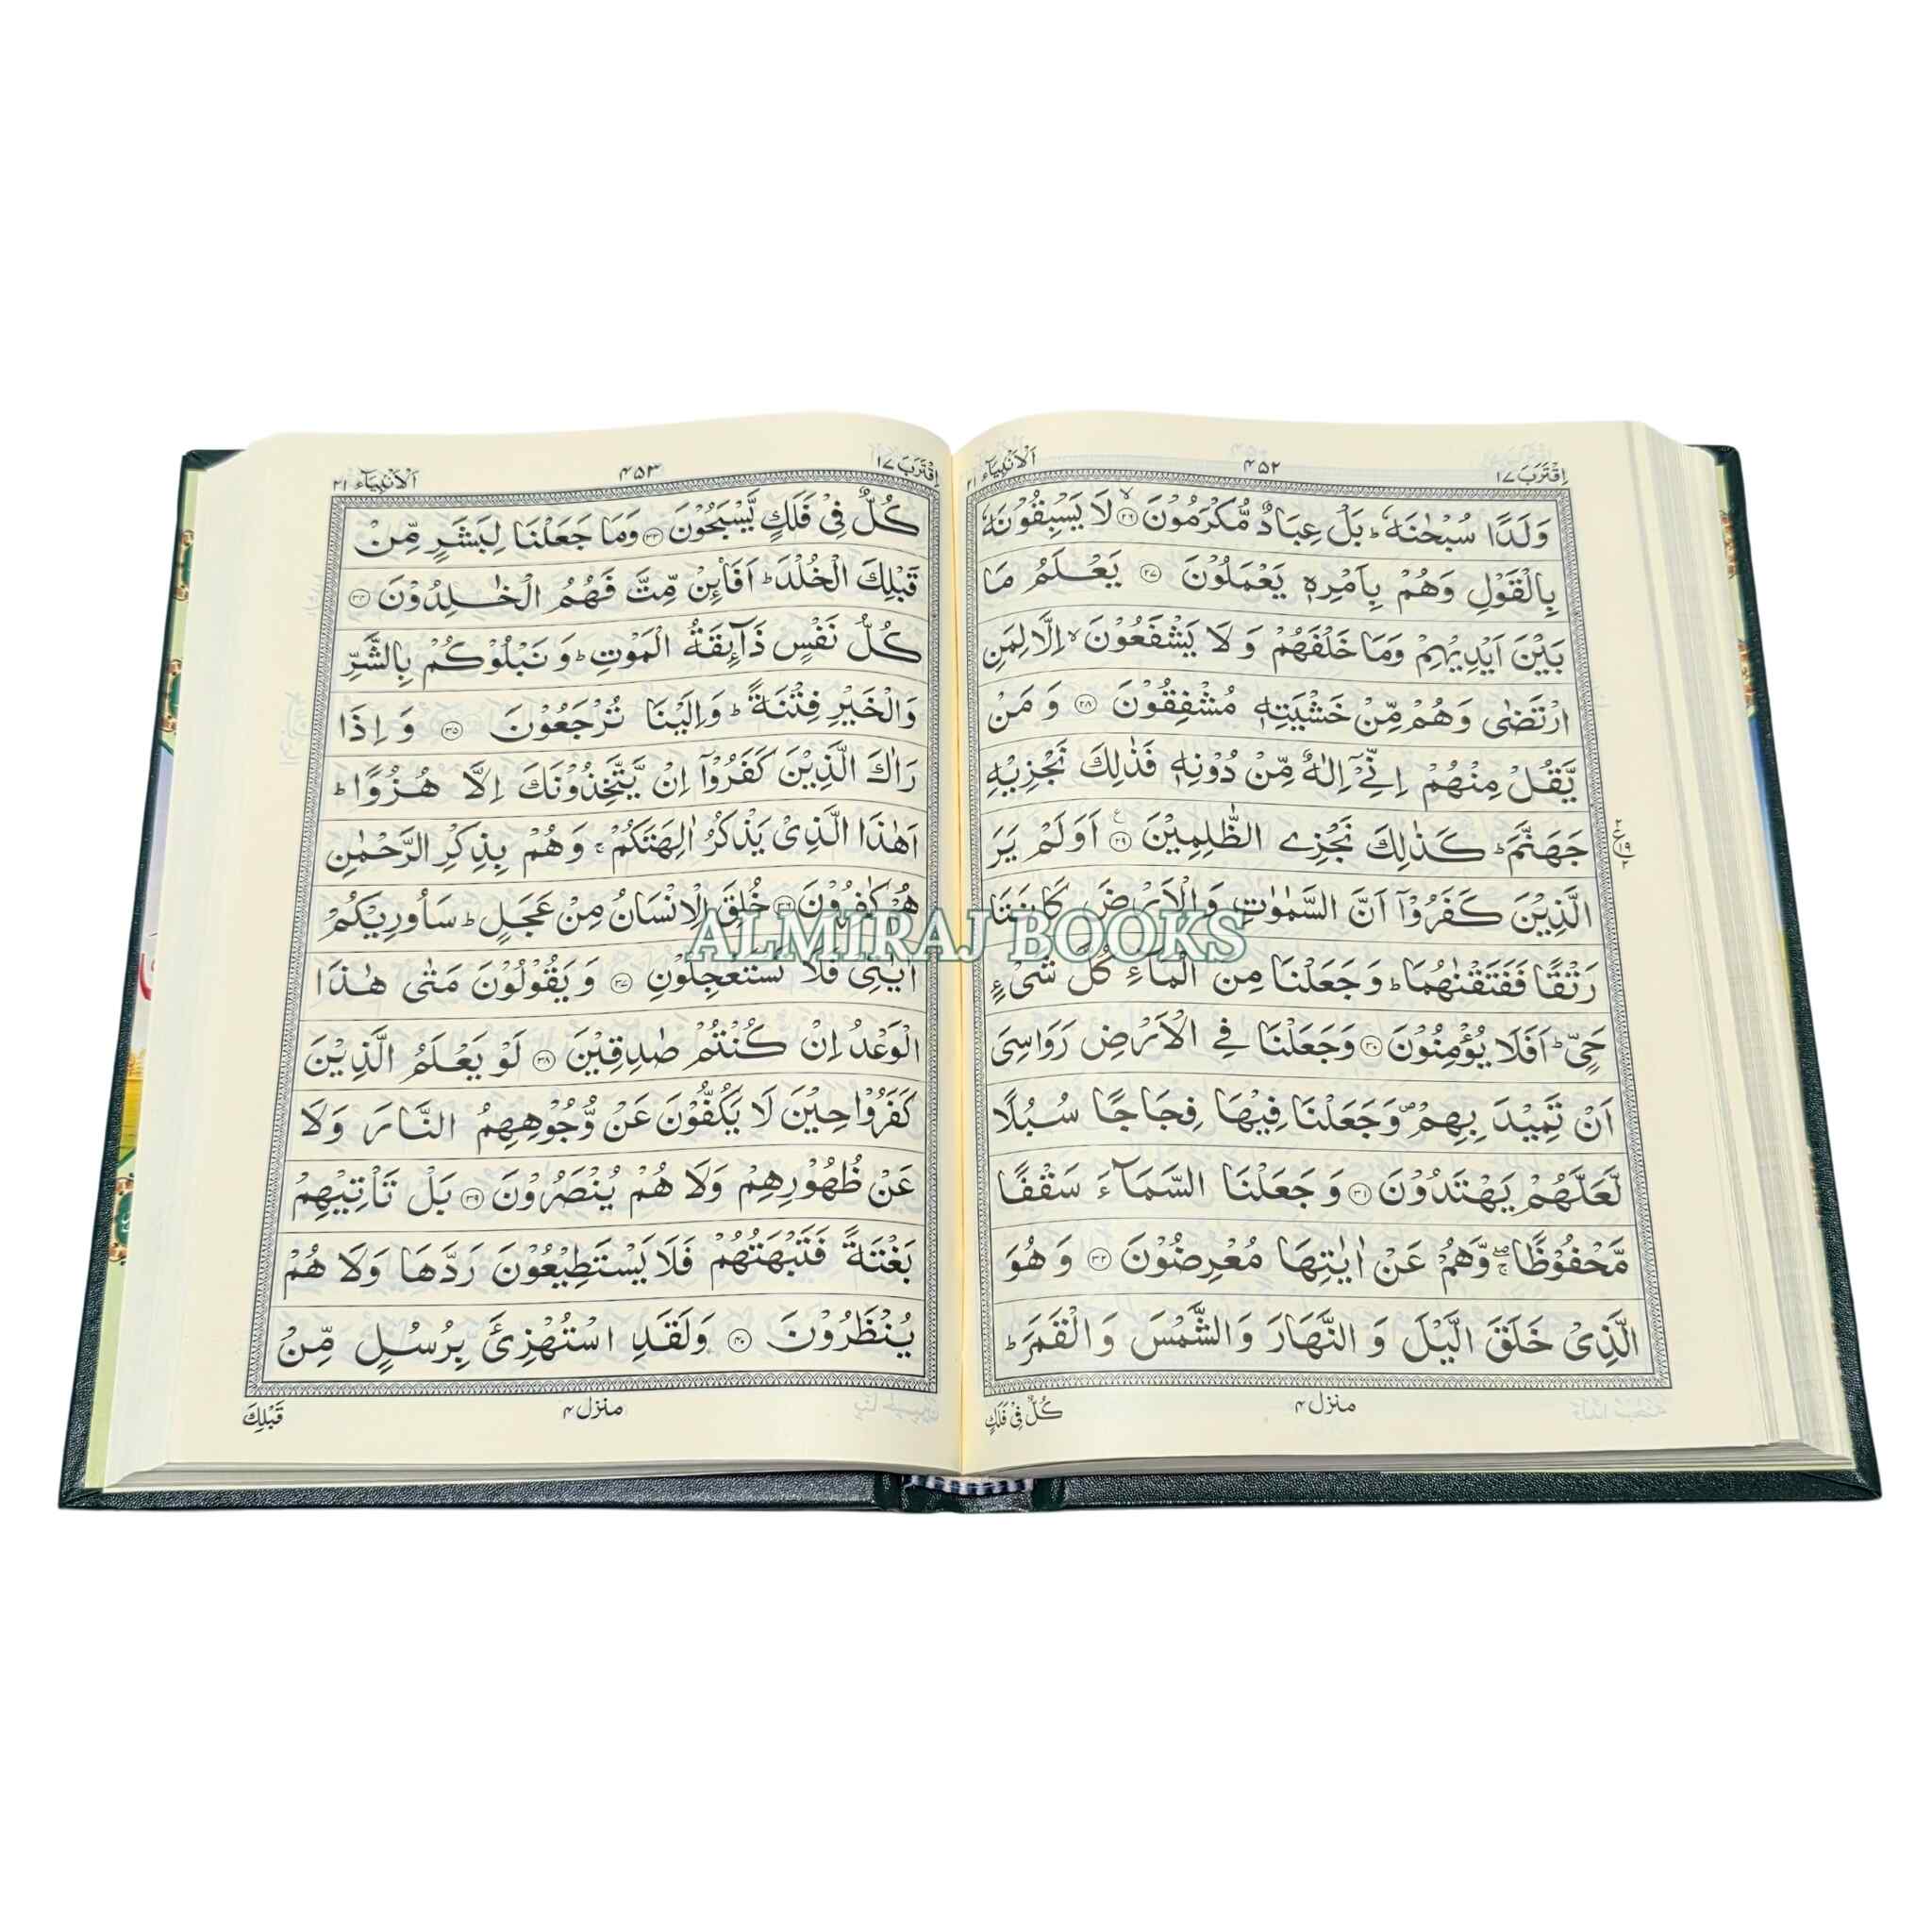 اِقْتَرَبَ ١٧
۴۵۲
اَلْاَنْۢبِيَآء ٢١
وَلَدًا سُبْحٰنَهٗ ؕ بَلْ عِبَادٌ مُّكْرَمُوْنَ ۙ﴿٢٦﴾ لَا يَسْبِقُوْنَهٗ
بِالْقَوْلِ وَهُمْ بِاَمْرِهٖ يَعْمَلُوْنَ ﴿٢٧﴾ يَعْلَمُ مَا
بَيْنَ اَيْدِيْهِمْ وَمَا خَلْفَهُمْ وَ لَا يَشْفَعُوْنَ ۙ اِلَّا لِمَنِ
ارْتَضٰى وَهُمْ مِّنْ خَشْيَتِهٖ مُشْفِقُوْنَ ﴿٢٨﴾ وَ مَنْ
يَّقُلْ مِنْهُمْ اِنِّيْۤ اِلٰهٌ مِّنْ دُوْنِهٖ فَذٰلِكَ نَجْزِيْهِ
جَهَنَّمَ ؕ كَذٰلِكَ نَجْزِي الظّٰلِمِيْنَ ﴿٢٩﴾ اَوَلَمْ يَرَ
الَّذِيْنَ كَفَرُوْۤا اَنَّ السَّمٰوٰتِ وَ الْاَرْضَ كَانَتَا
رَتْقًا فَفَتَقْنٰهُمَا ؕ وَ جَعَلْنَا مِنَ الْمَآءِ كُلَّ شَيْءٍ
حَيٍّ ؕ اَفَلَا يُؤْمِنُوْنَ ﴿٣٠﴾ وَجَعَلْنَا فِي الْاَرْضِ رَوَاسِيَ
اَنْ تَمِيْدَ بِهِمْ ۪ وَجَعَلْنَا فِيْهَا فِجَاجًا سُبُلًا
لَّعَلَّهُمْ يَهْتَدُوْنَ ﴿٣١﴾ وَ جَعَلْنَا السَّمَآءَ سَقْفًا
مَّحْفُوْظًا ۚۖ وَّهُمْ عَنْ اٰيٰتِهَا مُعْرِضُوْنَ ﴿٣٢﴾ وَ هُوَ
الَّذِيْ خَلَقَ الَّيْلَ وَ النَّهَارَ وَ الشَّمْسَ وَ الْقَمَرَ ؕ
منزل ۴
كُلٌّ فِيْ فَلَكٍ
اِقْتَرَبَ ١٧
۴۵۳
اَلْاَنْۢبِيَآء ٢١
كُلٌّ فِيْ فَلَكٍ يَّسْبَحُوْنَ ﴿٣٣﴾ وَمَا جَعَلْنَا لِبَشَرٍ مِّنْ
قَبْلِكَ الْخُلْدَ ؕ اَفَا۟ئِنْ مِّتَّ فَهُمُ الْخٰلِدُوْنَ ﴿٣٤﴾
كُلُّ نَفْسٍ ذَآئِقَةُ الْمَوْتِ ؕ وَ نَبْلُوْكُمْ بِالشَّرِّ
وَالْخَيْرِ فِتْنَةً ؕ وَاِلَيْنَا تُرْجَعُوْنَ ﴿٣٥﴾ وَ اِذَا
رَاٰكَ الَّذِيْنَ كَفَرُوْۤا اِنْ يَّتَّخِذُوْنَكَ اِلَّا هُزُوًا ؕ
اَهٰذَا الَّذِيْ يَذْكُرُ اٰلِهَتَكُمْ ۚ وَهُمْ بِذِكْرِ الرَّحْمٰنِ
هُمْ كٰفِرُوْنَ ﴿٣٦﴾ خُلِقَ الْاِنْسَانُ مِنْ عَجَلٍ ؕ سَاُورِيْكُمْ
اٰيٰتِيْ فَلَا تَسْتَعْجِلُوْنِ ﴿٣٧﴾ وَ يَقُوْلُوْنَ مَتٰى هٰذَا
الْوَعْدُ اِنْ كُنْتُمْ صٰدِقِيْنَ ﴿٣٨﴾ لَوْ يَعْلَمُ الَّذِيْنَ
كَفَرُوْا حِيْنَ لَا يَكُفُّوْنَ عَنْ وُّجُوْهِهِمُ النَّارَ وَلَا
عَنْ ظُهُوْرِهِمْ وَلَا هُمْ يُنْصَرُوْنَ ﴿٣٩﴾ بَلْ تَاْتِيْهِمْ
بَغْتَةً فَتَبْهَتُهُمْ فَلَا يَسْتَطِيْعُوْنَ رَدَّهَا وَلَا هُمْ
يُنْظَرُوْنَ ﴿٤٠﴾ وَلَقَدِ اسْتُهْزِئَ بِرُسُلٍ مِّنْ
منزل ۴
قَبْلِكَ
ALMIRAJ BOOKS